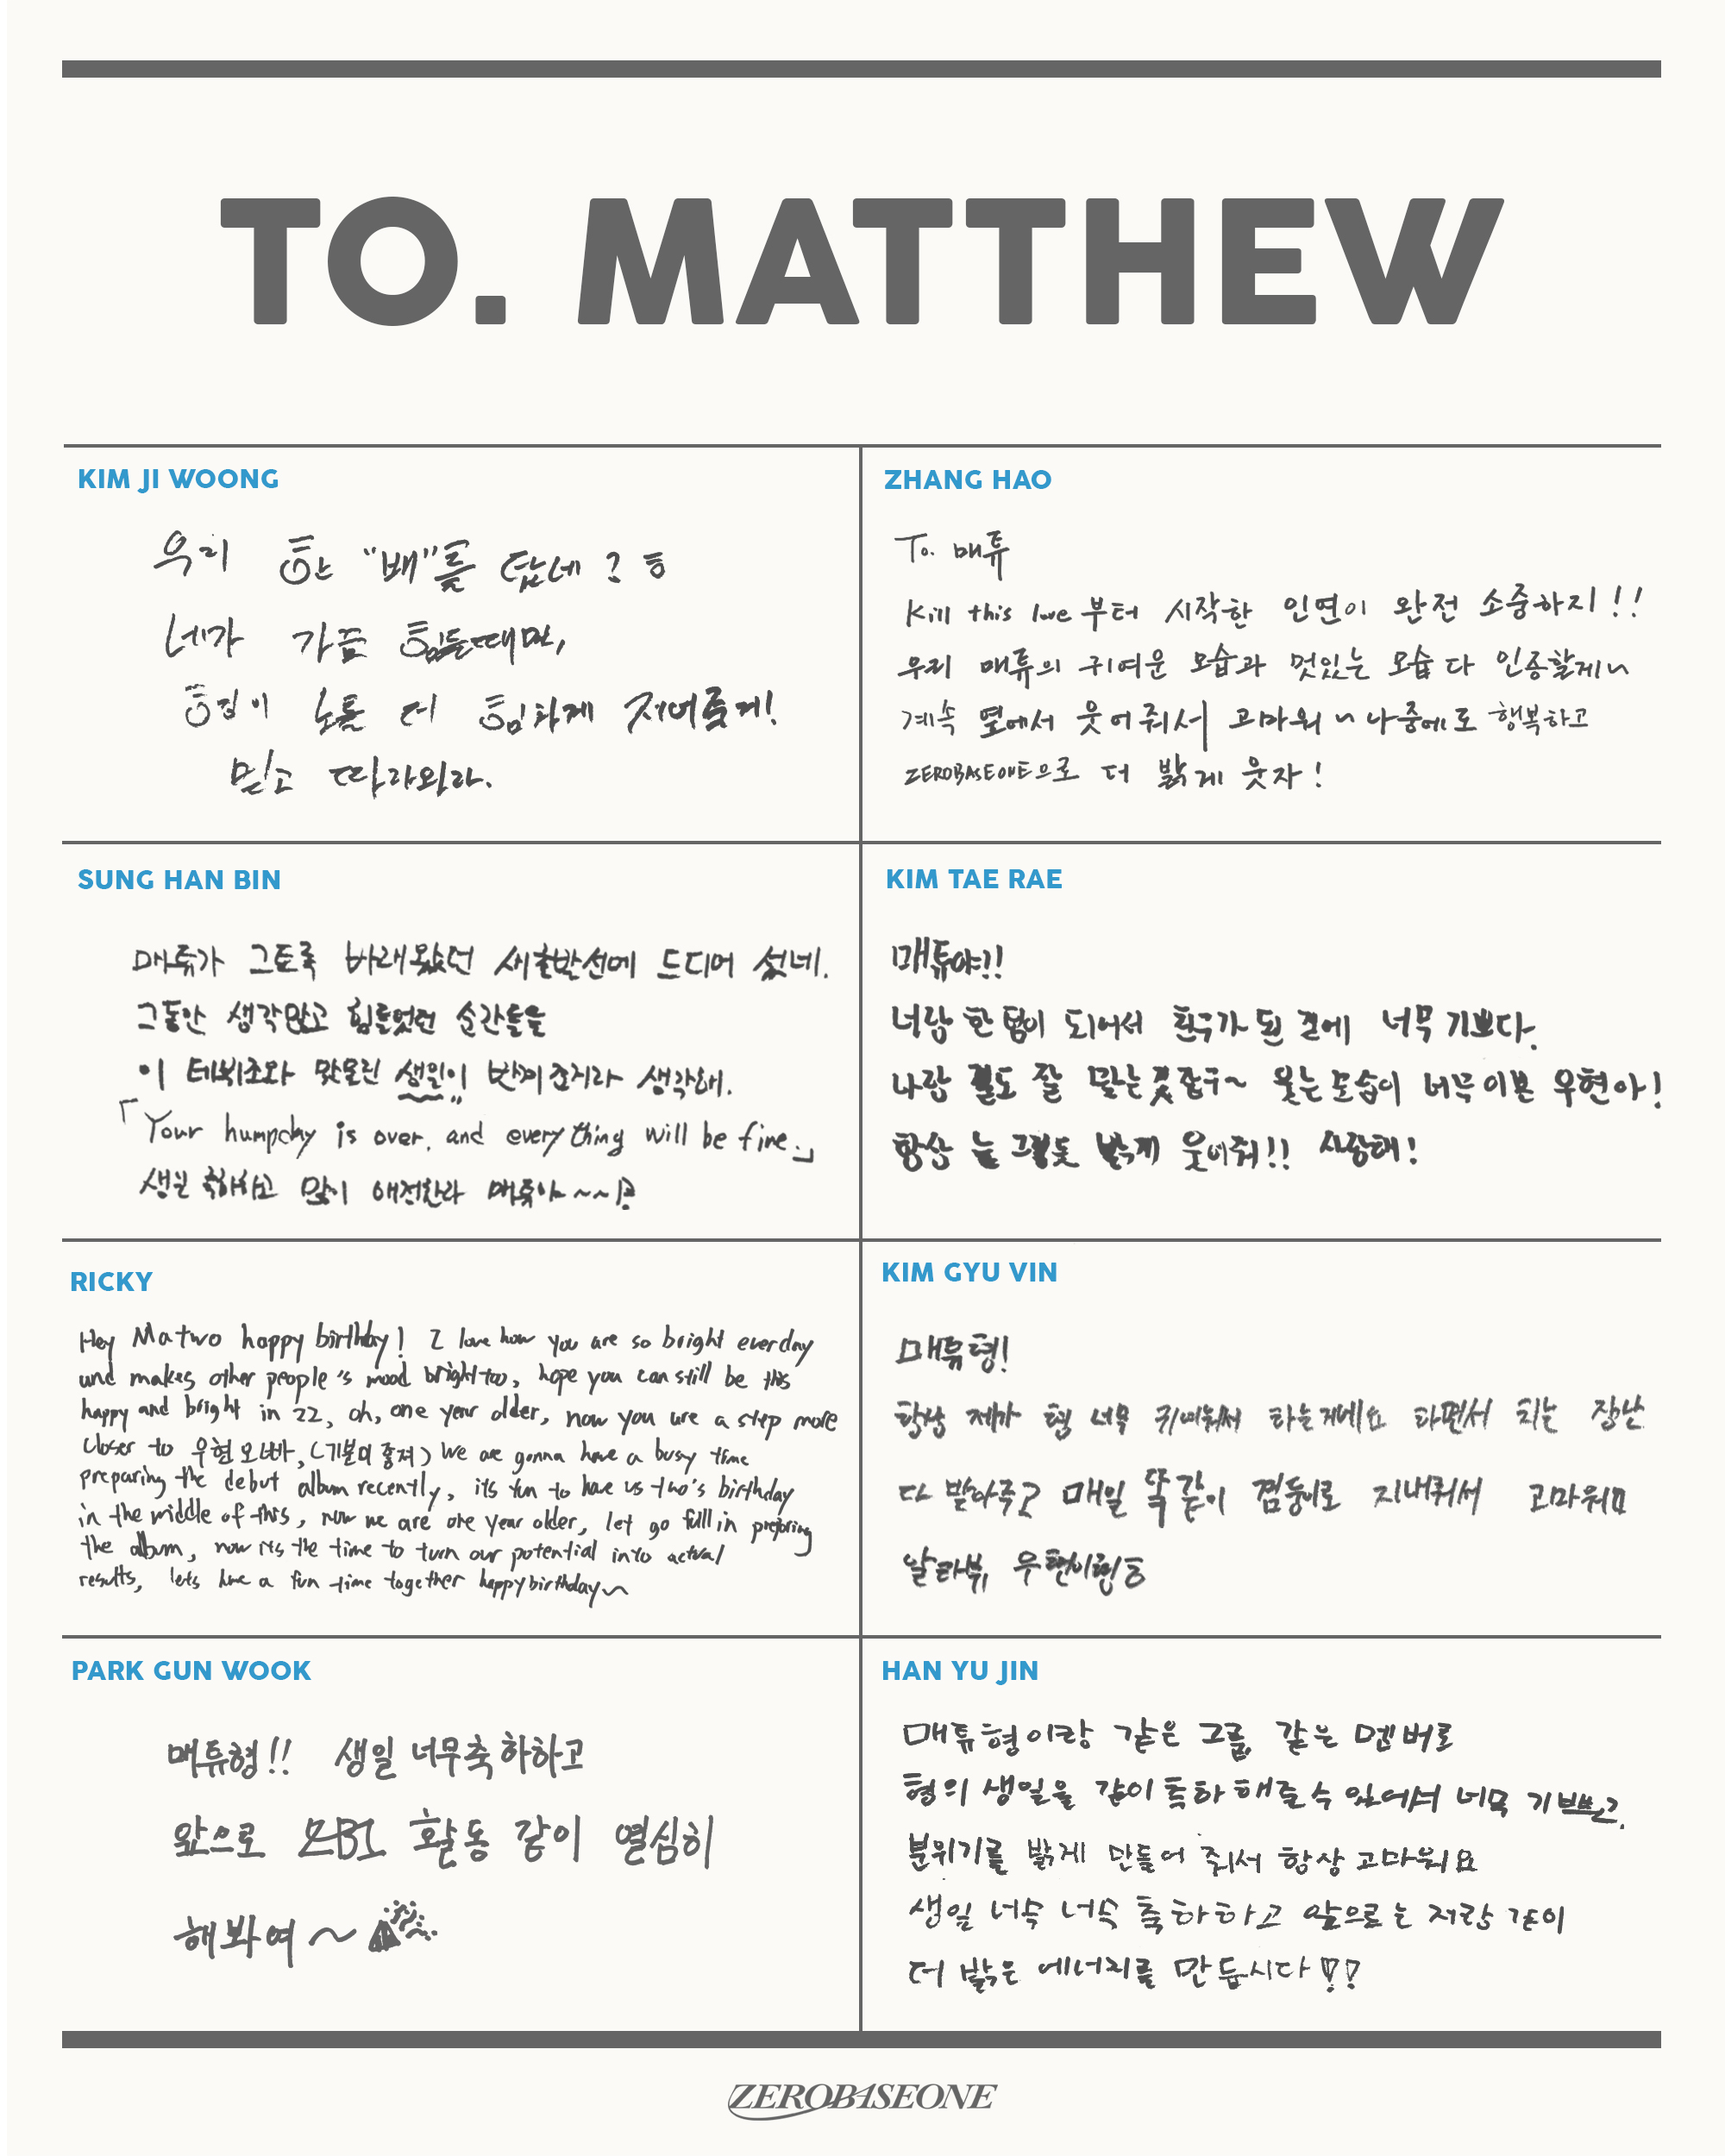 TO. MATTHEW
KIM JI WOONG
우리 한 "배"를 탔네? ㅎ
네가 가끔 힘들때면,
형이 노를 더 힘차게 저어줄게!
믿고 따라와라.
ZHANG HAO
To. 매튜
Kill this love부터 시작한 인연이 완전 소중하지!!
우리 매튜의 귀여운 모습과 멋있는 모습 다 인증할게~
계속 옆에서 웃어줘서 고마워~ 나중에도 행복하고
ZEROBASEONE으로 더 밝게 웃자!
SUNG HAN BIN
매튜가 그토록 바래왔던 새출발선에 드디어 섰네.
그동안 생각많고 힘들었던 순간들을
이 데뷔조와 맞물린 생일이 반겨준거라 생각해.
「Your humpday is over, and everything will be fine.」
생일 축하하고 많이 애정한다 매튜야~~!?
KIM TAE RAE
매튜야!!
너랑 한 팀이 되어서 친구가 된 것에 너무 기쁘다.
나랑 결도 잘 맞는것같구~ 웃는모습이 너무 이쁜 우현아!
항상 늘 그렇듯 밝게 웃어줘!! 사랑해!
RICKY
Hey Matwo happy birthday! I love how you are so bright everday
and makes other people's mood bright too, hope you can still be this
happy and bright in 22, oh, one year older, now you are a step more
closer to 우현오빠, (기분이 좋져) We are gonna have a busy time
preparing the debut album recently, its fun to have us two's birthday
in the middle of this, now we are one year older, let go full in preparing
the album, now its the time to turn our potential into actual
results, lets have a fun time together happy birthday~
KIM GYU VIN
매튜형!
항상 제가 형 너무 귀여워서 하는거네요 하면서 치는 장난
다 받아주고 매일 똑같이 껌둥이로 지내줘서 고마워요
알라뷰 우현이형ㅎ
PARK GUN WOOK
매튜형!! 생일 너무축하하고
앞으로 ZB1 활동 같이 열심히
해봐여~
HAN YU JIN
매튜형이랑 같은 그룹, 같은 멤버로
형의 생일을 같이 축하해줄수 있어서 너무 기쁘고.
분위기를 밝게 만들어 줘서 항상 고마워요
생일 너무 너무 축하하고 앞으로는 저랑 같이
더 밝은 에너지를 만듭시다!!
ZEROBASEONE